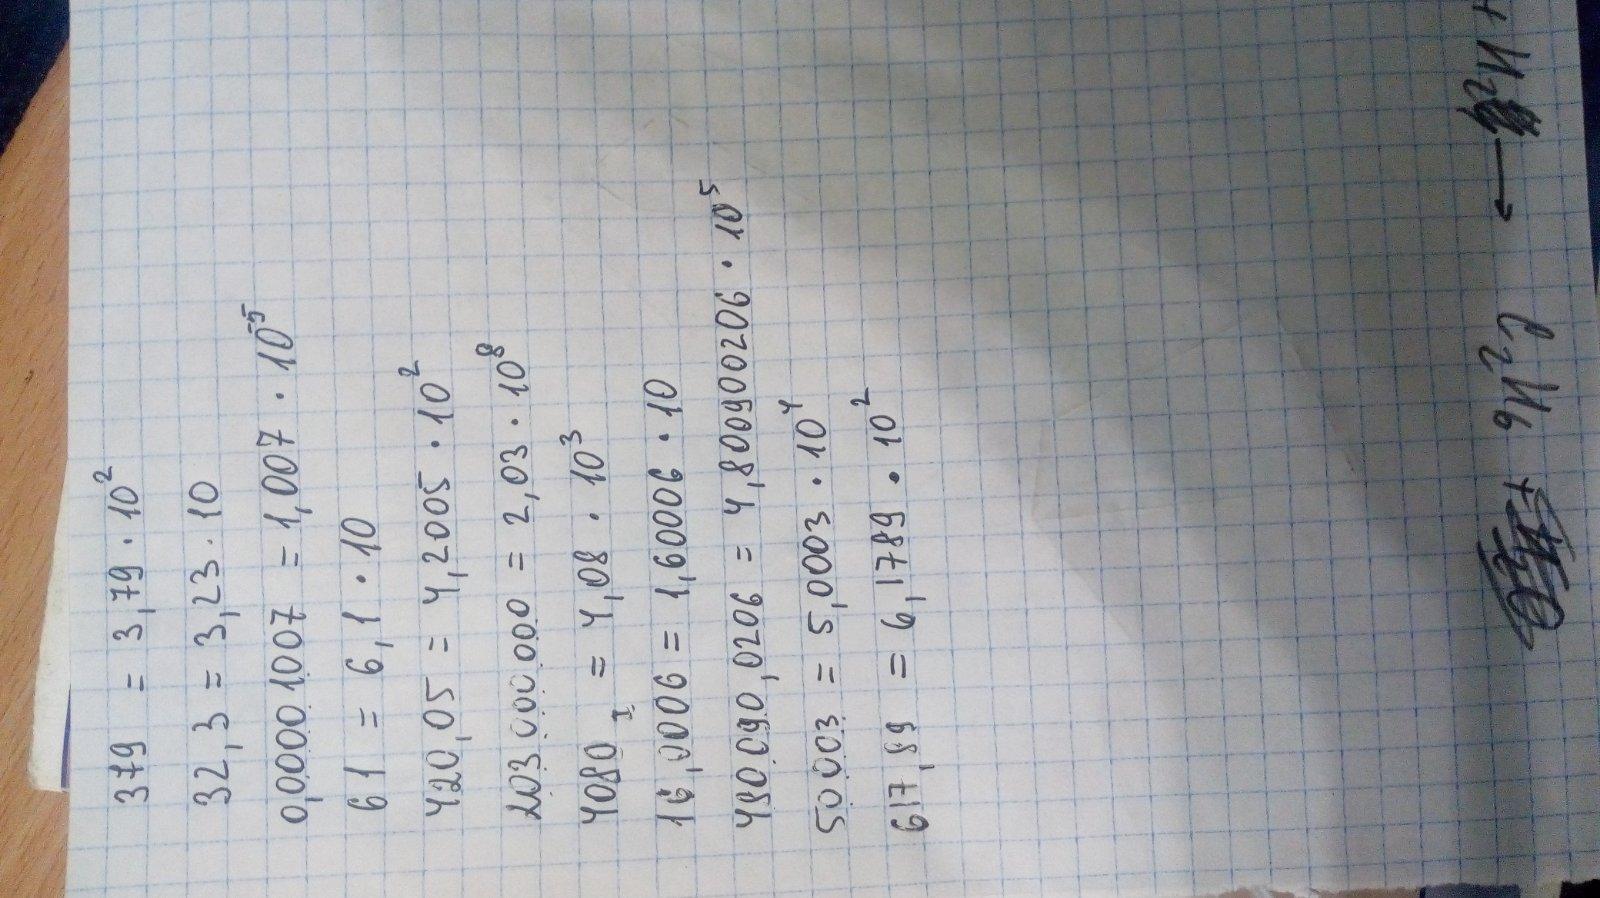 379 = 3,79 · 10²
32,3 = 3,23 · 10
0,00001007 = 1,007 · 10⁻⁵
61 = 6,1 · 10
420,05 = 4,2005 · 10²
203 000 000 = 2,03 · 10⁸
4080 = 4,08 · 10³
16,0006 = 1,60006 · 10
480090,0206 = 4,800900206 · 10⁵
50003 = 5,0003 · 10⁴
617,89 = 6,1789 · 10²